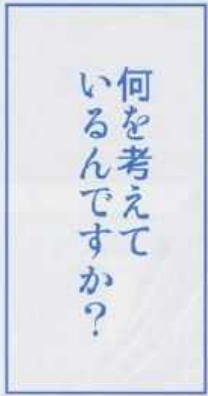 何を考えて
いるんですか？